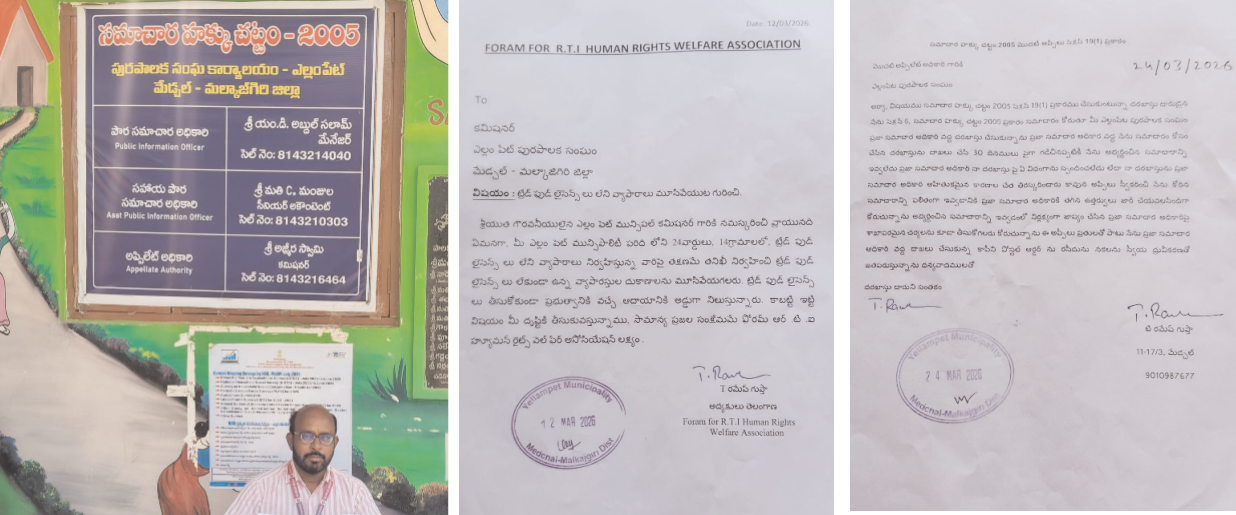 సమాచార హక్కు చట్టం - 2005
పురపాలక సంఘ కార్యాలయం - ఎల్లంపేట్
మేడ్చల్ - మల్కాజ్‌గిరి జిల్లా
పౌర సమాచార అధికారి
Public Information Officer
శ్రీ యం.డి. అబ్దుల్ సలామ్
మేనేజర్
సెల్ నెం: 8143214040
సహాయ పౌర
సమాచార అధికారి
Asst Public Information Officer
శ్రీ మతి C. మంజుల
సీనియర్ అకౌంటెంట్
సెల్ నెం: 8143210303
అప్పిలేట్ అధికారి
Appellate Authority
శ్రీ అజ్మీర స్వామి
కమిషనర్
సెల్ నెం: 8143216464
Date: 12/03/2026
FORAM FOR R.T.I HUMAN RIGHTS WELFARE ASSOCIATION
To
కమిషనర్
ఎల్లం పేట్ పురపాలక సంఘం
మేడ్చల్ - మల్కాజిగిరి జిల్లా
విషయం : ట్రేడ్ ఫుడ్ లైసెన్స్ లు లేని వ్యాపారాలు మూసివేయుట గురించి.
శ్రీయుత గౌరవనీయులైన ఎల్లం పేట్ మున్సిపల్ కమిషనర్ గారికి నమస్కరించి వ్రాయునది
ఏమనగా, మీ ఎల్లం పేట్ మున్సిపాలిటీ పరిది లోని 24వార్డులు, 14గ్రామాలలో, ట్రేడ్ ఫుడ్
లైసెన్స్ లు లేని వ్యాపారాలు నిర్వహిస్తున్న వారిపై తక్షణమే తనిఖీ నిర్వహించి ట్రేడ్ ఫుడ్
లైసెన్స్ లు లేకుండా ఉన్న వ్యాపారస్తుల దుకాణాలను మూసివేయగలరు. ట్రేడ్ ఫుడ్ లైసెన్స్
లు తీసుకోకుండా ప్రభుత్వానికి వచ్చే ఆదాయానికి అడ్డుగా నిలుస్తున్నారు. కాబట్టి ఇట్టి
విషయం మీ దృష్టికి తీసుకువస్తున్నాము, సామాన్య ప్రజల సంక్షేమమే ఫోరమ్ ఆర్ .టి .ఐ
హ్యూమన్ రైట్స్ వెల్ ఫేర్ అసోసియేషన్ లక్ష్యం .
T రమేష్ గుప్తా
అధ్యక్షులు తెలంగాణ
Foram for R.T.I Human Rights
Welfare Association
Yellampet Municipality
12 MAR 2026
Medchal-Malkajgiri Dist
సమాచార హక్కు చట్టం 2005 మొదటి అప్పీలు సెక్షన్ 19(1) ప్రకారం
మొదటి అప్పిలేట్ అధికారి గారికి
24/03/2026
ఎల్లంపేట పురపాలక సంఘం
అయ్యా, విషయము సమాచార హక్కు చట్టం 2005 సెక్షన్ 19(1) ప్రకారము చేసుకుంటున్నా దరఖాస్తు దారుడైన
నేను సెక్షన్ 6, సమాచార హక్కు చట్టం 2005 ప్రకారం సమాచారం కోరుతూ మీ ఎల్లంపేట పురపాలక సంఘం
ప్రజా సమాచార అధికారి వద్ద దరఖాస్తు చేసుకున్నాను ప్రజా సమాచార అధికారి వద్ద నేను సమాచారం కోసం
చేసిన దరఖాస్తును దాఖలు చేసి 30 దినములు పైగా గడిచినప్పటికీ నేను అభ్యర్థించిన సమాచారాన్ని
ఇవ్వలేదు ప్రజా సమాచార అధికారి నా దరఖాస్తు పై ఏ విధంగాను స్పందించలేదు లేదా నా దరఖాస్తును ప్రజా
సమాచార అధికారి అహేతుకమైన కారణాల చేత తిరస్కరించారు కావున అప్పీలు స్వీకరించి నేను కోరిన
సమాచారాన్ని ఫలితంగా ఇవ్వడానికి ప్రజా సమాచార అధికారికి తగిన ఉత్తర్వులు జారీ చేయవలసిందిగా
కోరుచున్నాను అభ్యర్థించిన సమాచారాన్ని ఇవ్వడంలో నిర్లక్ష్యంగా జాప్యం చేసిన ప్రజా సమాచార అధికారిపై
శాఖాపరమైన చర్యలను కూడా తీసుకోగలరు కోరుచున్నాను ఈ అప్పీలు ప్రతులతో పాటు నేను ప్రజా సమాచార
అధికారి వద్ద దాఖలు చేసుకున్న కాపీని పోస్టల్ ఆర్డర్ ను రసీదును నకలను స్వీయ ధ్రువీకరణతో
జతపరుస్తున్నాను ధన్యవాదములతో
దరఖాస్తు దారుని సంతకం
టి రమేష్ గుప్తా
11-17/3, మేడ్చల్
9010987677
Yellampet Municipality
24 MAR 2026
Medchal-Malkajgiri Dist